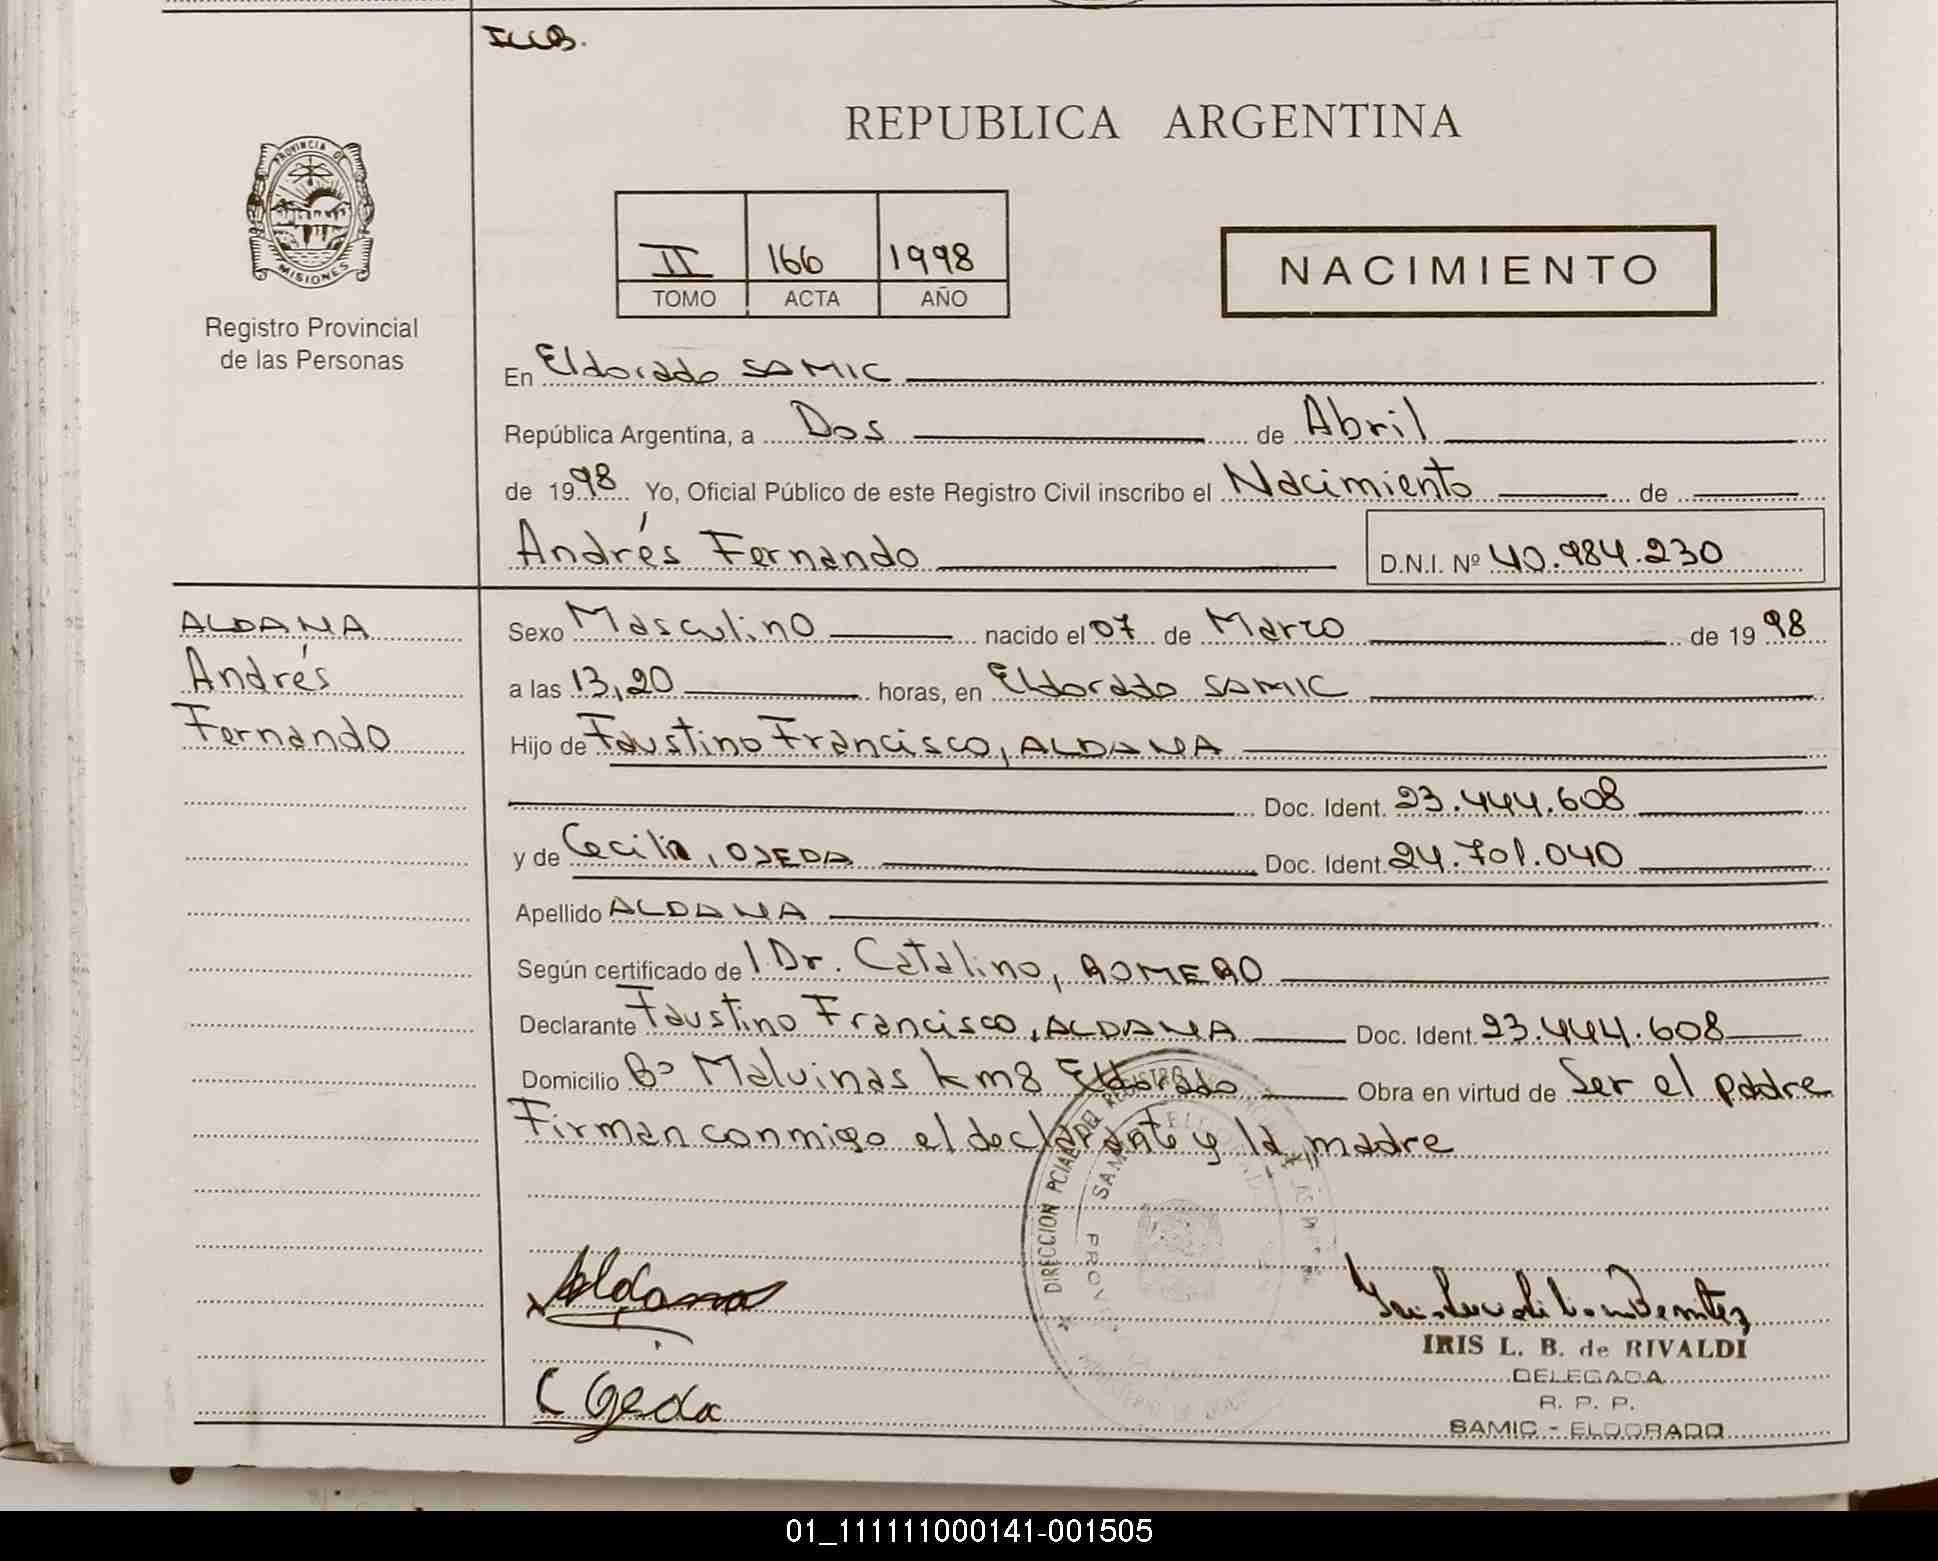 REPUBLICA ARGENTINA
PROVINCIA DE
MISIONES
Registro Provincial
de las Personas
II 166 1998
TOMO ACTA AÑO
NACIMIENTO
En Eldorado SAMIC
República Argentina, a Dos de Abril
de 1998 Yo, Oficial Público de este Registro Civil inscribo el Nacimiento de
Andrés Fernando
D.N.I. Nº 40.984.230
ALDANA
Andrés
Fernando
Sexo Masculino nacido el 07 de Marzo de 1998
a las 13,20 horas, en Eldorado SAMIC
Hijo de Faustino Francisco, ALDANA
Doc. Ident. 23.444.608
y de Cecilia, OJEDA Doc. Ident. 24.701.040
Apellido ALDANA
Según certificado de l Dr. Catalino, ROMERO
Declarante Faustino Francisco, ALDANA Doc. Ident. 23.444.608
Domicilio Bº Malvinas km8 Eldorado Obra en virtud de Ser el padre
Firman conmigo el declarante y la madre
DIRECCION PCIAL DEL REGISTRO
SAMIC
Aldana
C Ojeda
IRIS L. B. de RIVALDI
DELEGADA
R. P. P.
SAMIC - ELDORADO
01_111111000141-001505